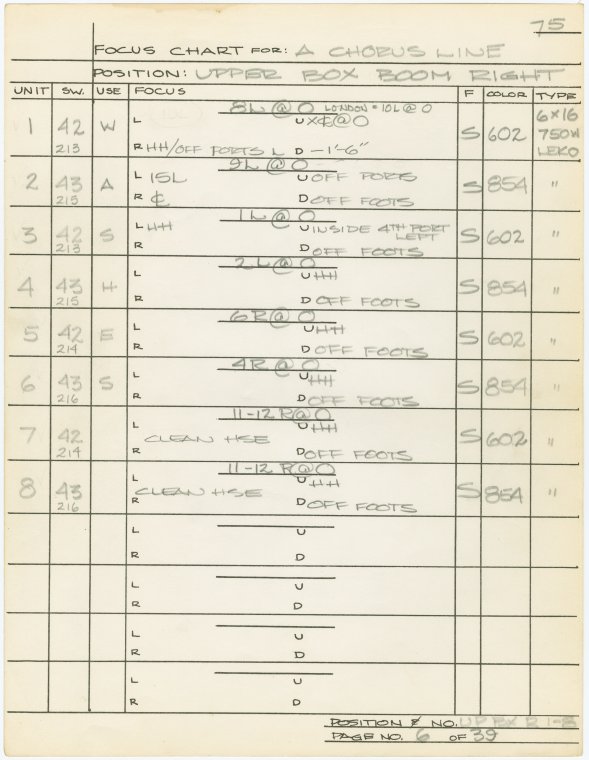 75
FOCUS CHART FOR: A CHORUS LINE
POSITION: UPPER BOX BOOM RIGHT
UNIT SW. USE FOCUS F COLOR TYPE
8L @ O LONDON = 10L @ O
1 42 213 W L U X ℄ @ O S 602 6x16 750W LEKO
R HH/OFF PORTS L D -1'-6"
9L @ O
2 43 215 A L 15L U OFF PORTS S 854 "
R ℄ D OFF FOOTS
1L @ O
3 42 213 S L HH U INSIDE 4TH PORT LEFT S 602 "
R D OFF FOOTS
2L @ O
4 43 215 H L U HH S 854 "
R D OFF FOOTS
6R @ O
5 42 214 E L U HH S 602 "
R D OFF FOOTS
4R @ O
6 43 216 S L U HH S 854 "
R D OFF FOOTS
11-12 R @ O
7 42 214 L CLEAN HSE U HH S 602 "
R D OFF FOOTS
11-12 R @ O
8 43 216 L CLEAN HSE U HH S 854 "
R D OFF FOOTS
L U
R D
L U
R D
L U
R D
L U
R D
POSITION & NO. UP BX R 1-8
PAGE NO. 6 OF 39